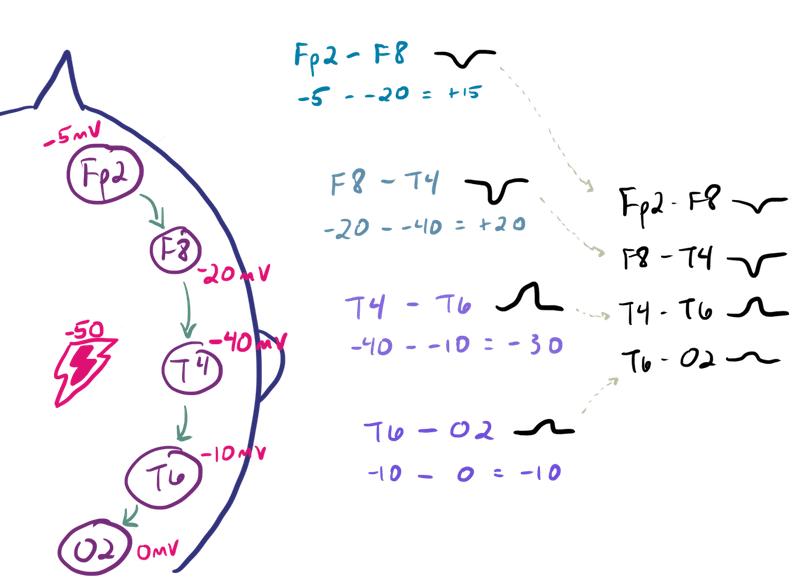 -5mV
Fp2
F8
-20mV
-50
-40mV
T4
-10mV
T6
O2
0mV
Fp2 - F8
-5 - -20 = +15
F8 - T4
-20 - -40 = +20
T4 - T6
-40 - -10 = -30
T6 - O2
-10 - 0 = -10
Fp2 - F8
F8 - T4
T4 - T6
T6 - O2